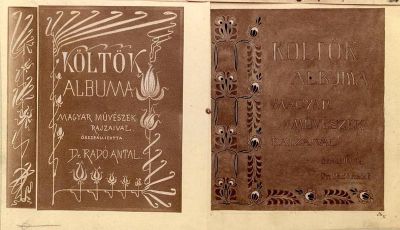 KÖLTŐK
ALBUMA
MAGYAR MŰVÉSZEK
RAJZAIVAL
ÖSSZEÁLLÍTOTTA
Dr. RADÓ ANTAL
KÖLTŐK
ALBUMA
MAGYAR
MŰVÉSZEK
RAJZAIVAL